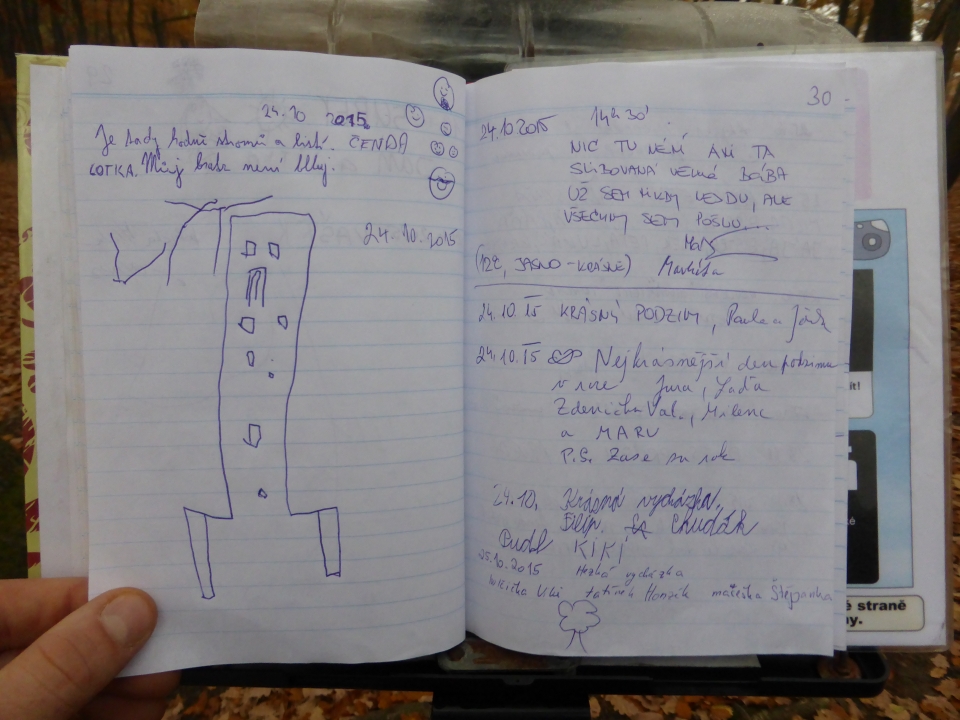 24.10 2015
Je tady hodně stromů a listí. ČENDA
LOTKA. Můj bratr není
24.10.2015
30
24.10.2015 14h30'
NIC TU NENÍ ANI TA
SLIBOVANÁ VELKÁ BÁBA
UŽ SEM NIKDY NEJDU, ALE
VŠECHNY SEM POŠLU...
Markéta
(12°C, JASNO-KRÁSNĚ)
24.10.15 KRÁSNÝ PODZIM, Pavla a
24.10.15 Nejkrásnější den podzimu
v roce Jura, Laďa
Zdenička Val., Milena
a MARU
P.S. Zase za rok
24.10. Krásná vycházka,
Filip. Chudák
Pudl KIKI
25.10.2015 Hezká vycházka
tatínek Honzík mateška Štěpánka
é straně
ny.
ít!